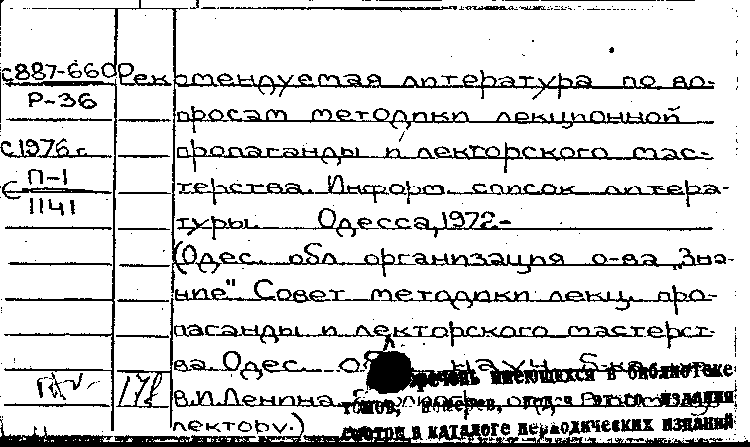 с887-660 Рекомендуемая литература по во-
Р-36
просам методики лекционной
с1976г. пропаганды и лекторского мас-
П-1
1141
терства. Информ. список литера-
туры. Одесса, 1972-
(Одес. обл. организация о-ва „Зна-
ние". Совет методики лекц. про-
паганды и лекторского мастерст-
ва. Одес. науч. б-ка
178 В.И.Ленина.
лектору.)
имеющихся в библиотеке
томов, номеров, издания
смотри в каталоге периодических изданий